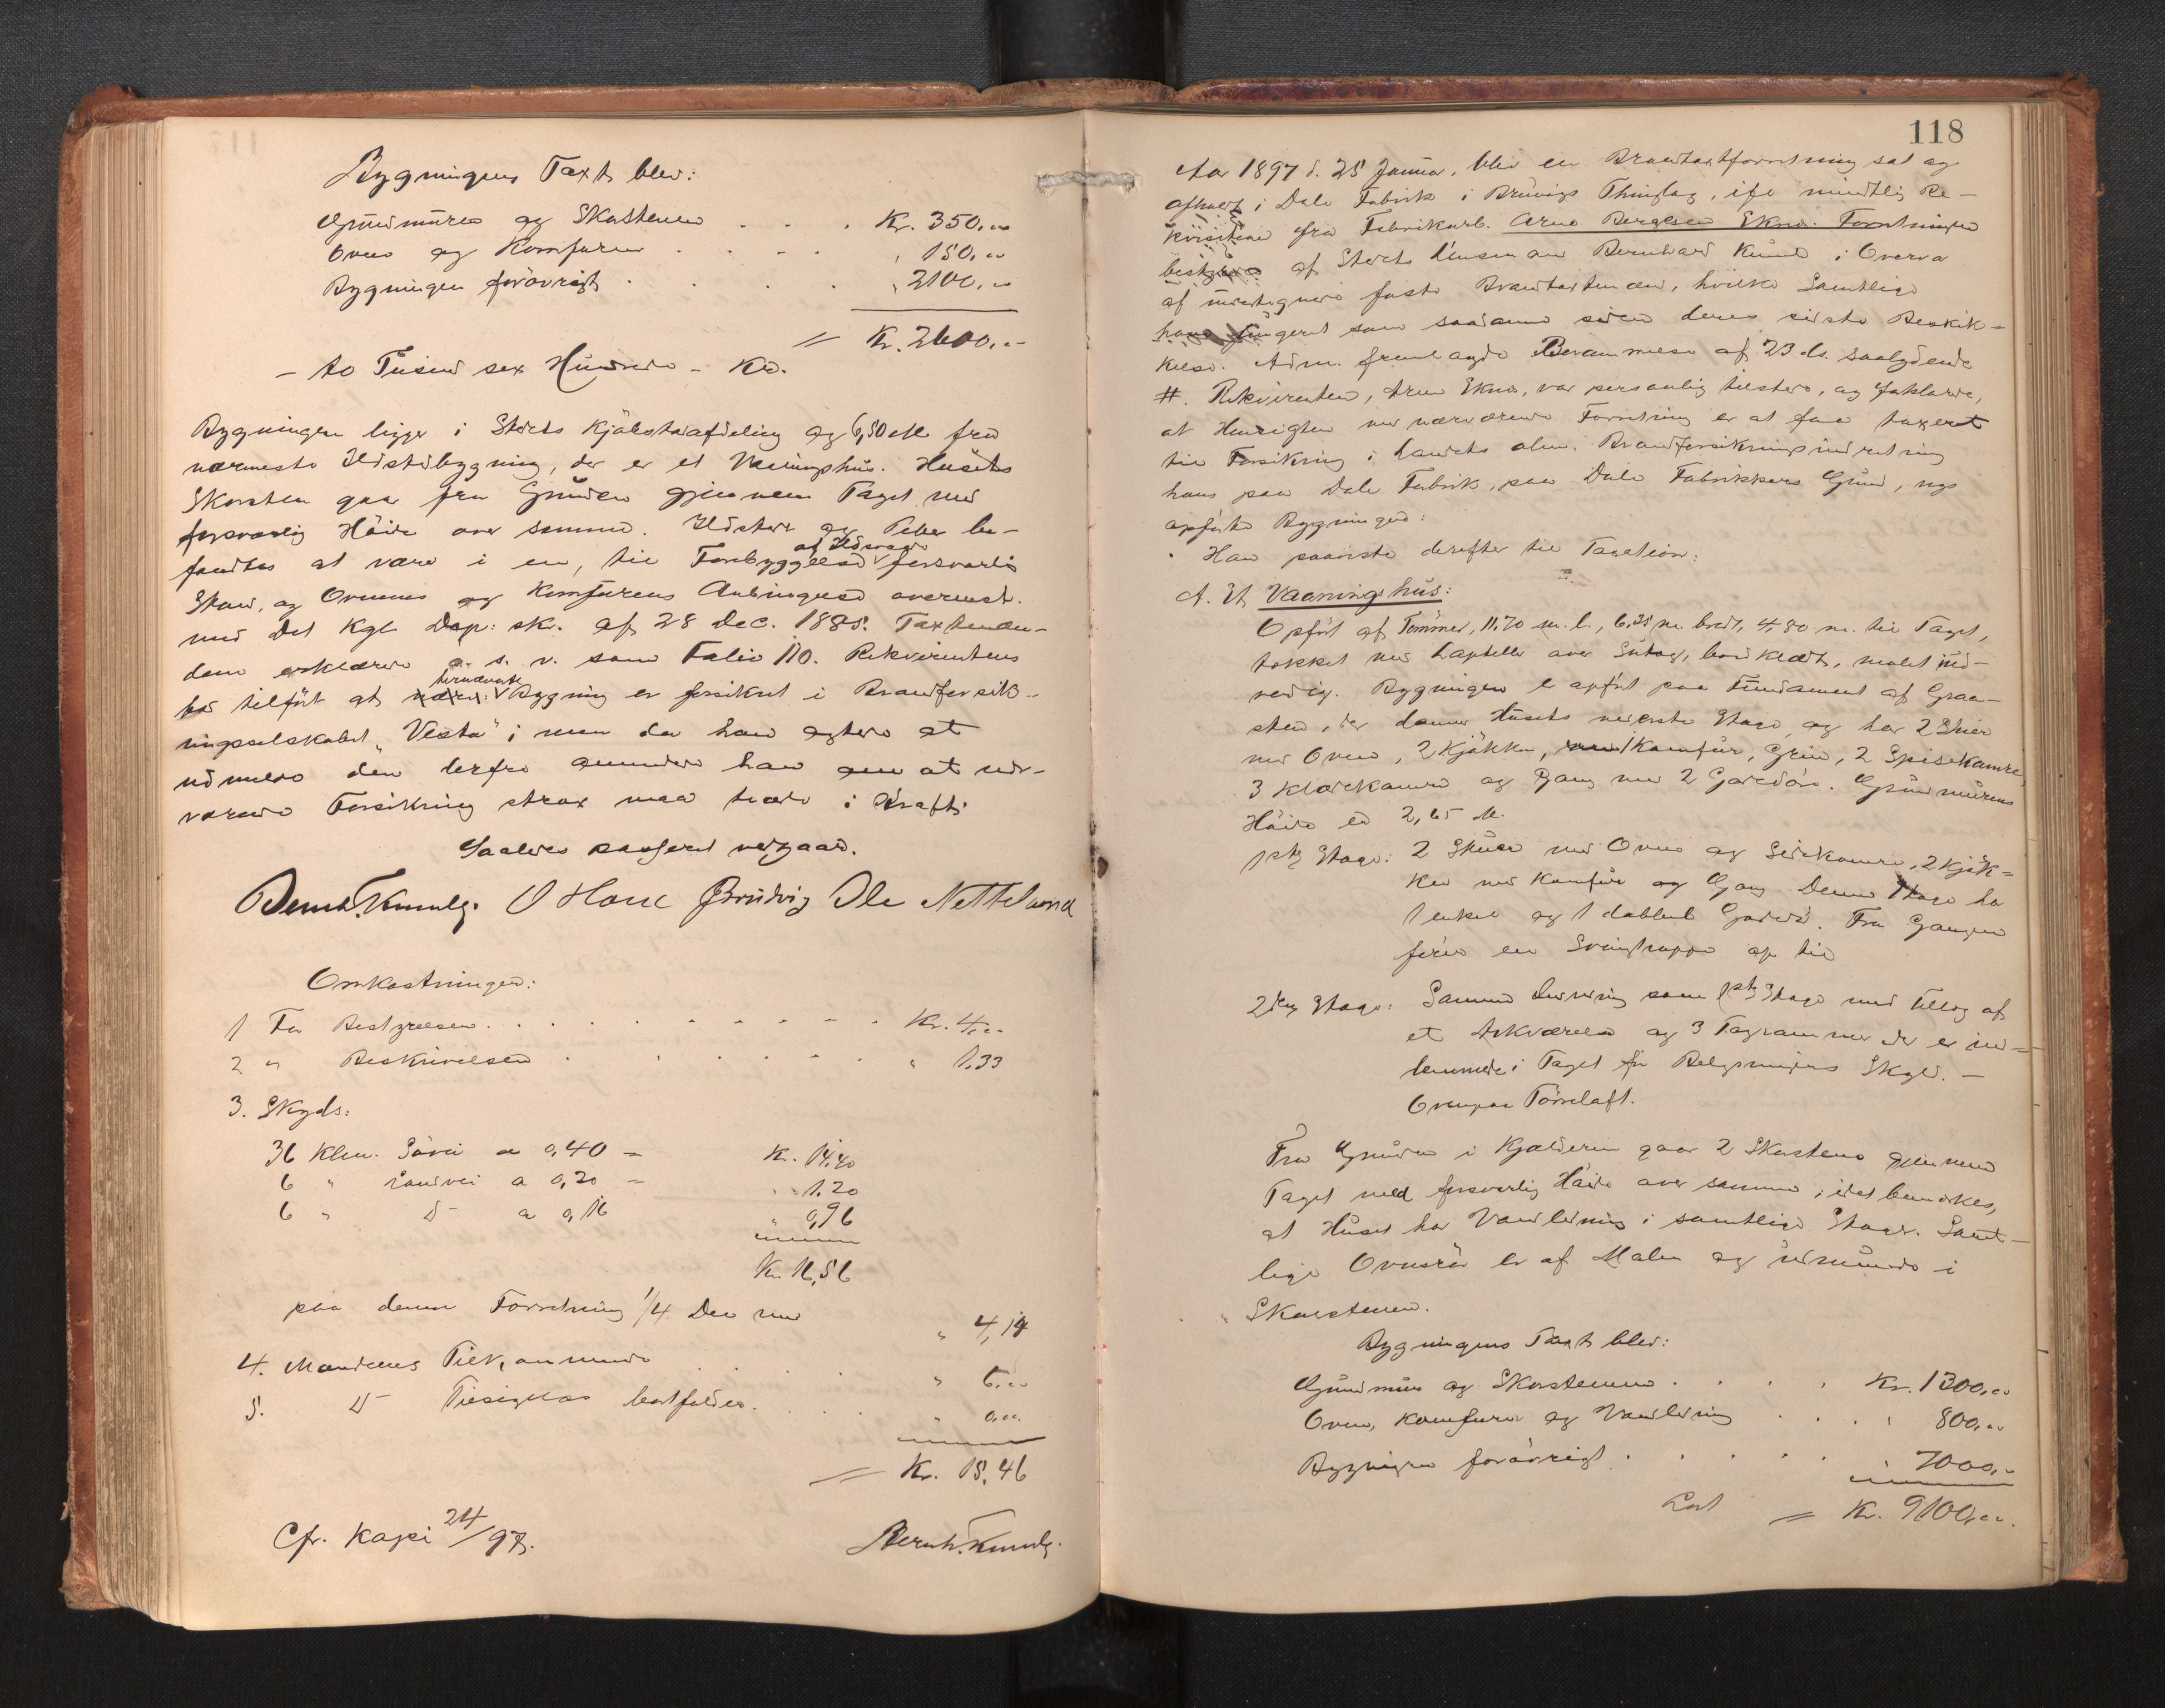 Bygningens Taxt blev:
Grundmuren og Skorstenen . . . Kr. 350,00
Ovne og Komfuren . . . . " 150,00
Bygningen forövrigt . . . . " 2100,00
= Kr. 2600,00
- to Tusind sex Hundrede - Kr.
Bygningen ligger i Stedets Kjöbstadafdeling og 6,50 M fra
nærmeste Ildstedsbygning, der er et Vaaningshus. Husets
Skorsten gaar fra Grunden gjennem Taget med
forsvarlig Höide over samme. Ildsteder og Piber be-
fandtes at være i en, til Forebyggelse af Ildsvaade forsvarlig
Stand, og Ovnenes og Komfurens Anbringelse overenst.
med Det Kgl. Dep: skr. af 28 Dec. 1885. Taxtmæn-
dene erklærede o. s. v. som Folio 110. Rekvirenten
bad tilfört at bemeldte Bygning er forsikret i Brandforsik-
ringsselskabet "Vesta"; men da han agter at
udmelde den derfra anmeldte han om at nær-
værende Forsikring strax maa træde i Kraft.
Saaledes passeret vedgaaes.
Bernh. Kunulg. O Hane Brudvig Ole Netteland
Omkostninger:
1 For Bestyrelsen . . . . . . . . . Kr. 4,00
2 " Beskrivelsen . . . . . . " 1,33
3. Skyds:
36 Klm. Sövei a 0,40 = Kr. 14,40
6 " Landvei a 0,20 = " 1.20
6 " D- a 0,16 " 0,96
Kr. 16,56
paa denne Forretning 1/4 Del med " 4,14
4. Mændenes Tilk, anmeldt . . . " 6,00
5. D- Tilsigelse bortfalder. . . . " 0,00
= Kr. 15,46
Cfr. Kopi 24/97.
Bernh. Kunulg.
118
Aar 1897 d. 25 Januar, blev en Brandtaxtforretning sat og
afholdt i Dale Fabrik i Bruvigs Thinglag, ifl mundtlig Re-
kvisition fra Fabrikarb. Arne Bergesen Eknes. Forretningen
bestyres af Stedets Lensmand Bernhard
af undertegnede faste Brandtaxtmænd, hvilke Samtlige
have fungeret som saadanne siden deres sidste Beskik-
kelse. Adm. fremlagde Berammelse af 23 ds. saalydende
#. Rekvirenten, Arne Eknes, var personlig tilstede, og forklarede,
at Hensigten med nærværende Forretning er at faa taxeret
til Forsikring i Landets alm. Brandforsikringsindretning
hans paa Dale Fabrik, paa Dale Fabrikkers Grund, nys
opförte Bygninger:
Han paaviste derefter til Taxation:
A. Et Vaaningshus:
Opfört af Tömmer, 11.70 m. l., 6,25 m. bredt, 4,80 m. til Taget,
tækket med Lapheller over Sutag, bordklædt, malet ud-
vendig. Bygningen er opfört paa Fundament af Graa-
sten, der danner Husets nederste Etage og har 2 Stuer
med Ovne, 2 Kjökken, med Komfur, Grue, 2 Spisekamre,
3 Klædekamre og Gang med 2 Gadedöre. Grundmurens
Höide er 2,65 M.
1ste Etage: 2 Stuer med Ovne og Sidekamre, 2 Kjök-
ken med Komfur og Gang. Denne Etage har
1 enkel og 1 dobbelt Gadedör. Fra Gangen
förer en Svingtrappe op til
2den Etage: Samme Indredning som 1ste Etage med Tillæg af
et Arkværelse og 3 Tagrammer der er ind-
lemmede i Taget for Belysningens Skyld. -
Ovenpaa Törreloft.
Fra Grunden i Kjælderen gaar 2 Skorstene gjennem
Taget med forsvarlig Höide over samme; idet bemærkes,
at Huset har Vandledning i samtlige Etager. Samt-
lige Ovnsrör er af Malm og indmurede i
Skorstenen.
Bygningens Taxt blev:
Grundmur og Skorstenene . . . . Kr. 1300,00
Ovne, Komfurer og Vandledning . . . . " 800,00
Bygningen forövrigt . . . . . 7000,00
Lat = Kr. 9100,00.